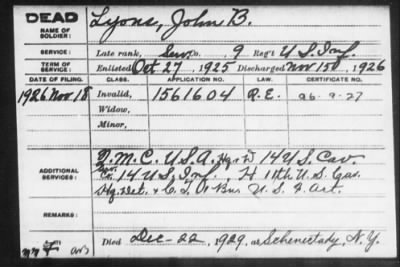 DEAD
NAME OF SOLDIER: Lyons, John B.
SERVICE: Late rank, Serv. Co. 9 Reg't U S Inf.
TERM OF SERVICE: Enlisted Oct 27, 1925 Discharged Nov 15, 1926
DATE OF FILING. CLASS. APPLICATION NO. LAW. CERTIFICATE NO.
1926 Nov 18 Invalid, 1561604 R.E. 26-9-27
Widow,
Minor,
ADDITIONAL SERVICES: Q.M.C. U.S.A. 14 U.S. Cav.
Co. 14 U.S. Inf., H 11th U.S. Cav.
Hq. Det. & C.T. U.S. F. Art.
REMARKS:
Died Dec-22, 1929, at Schenectady, N.Y.